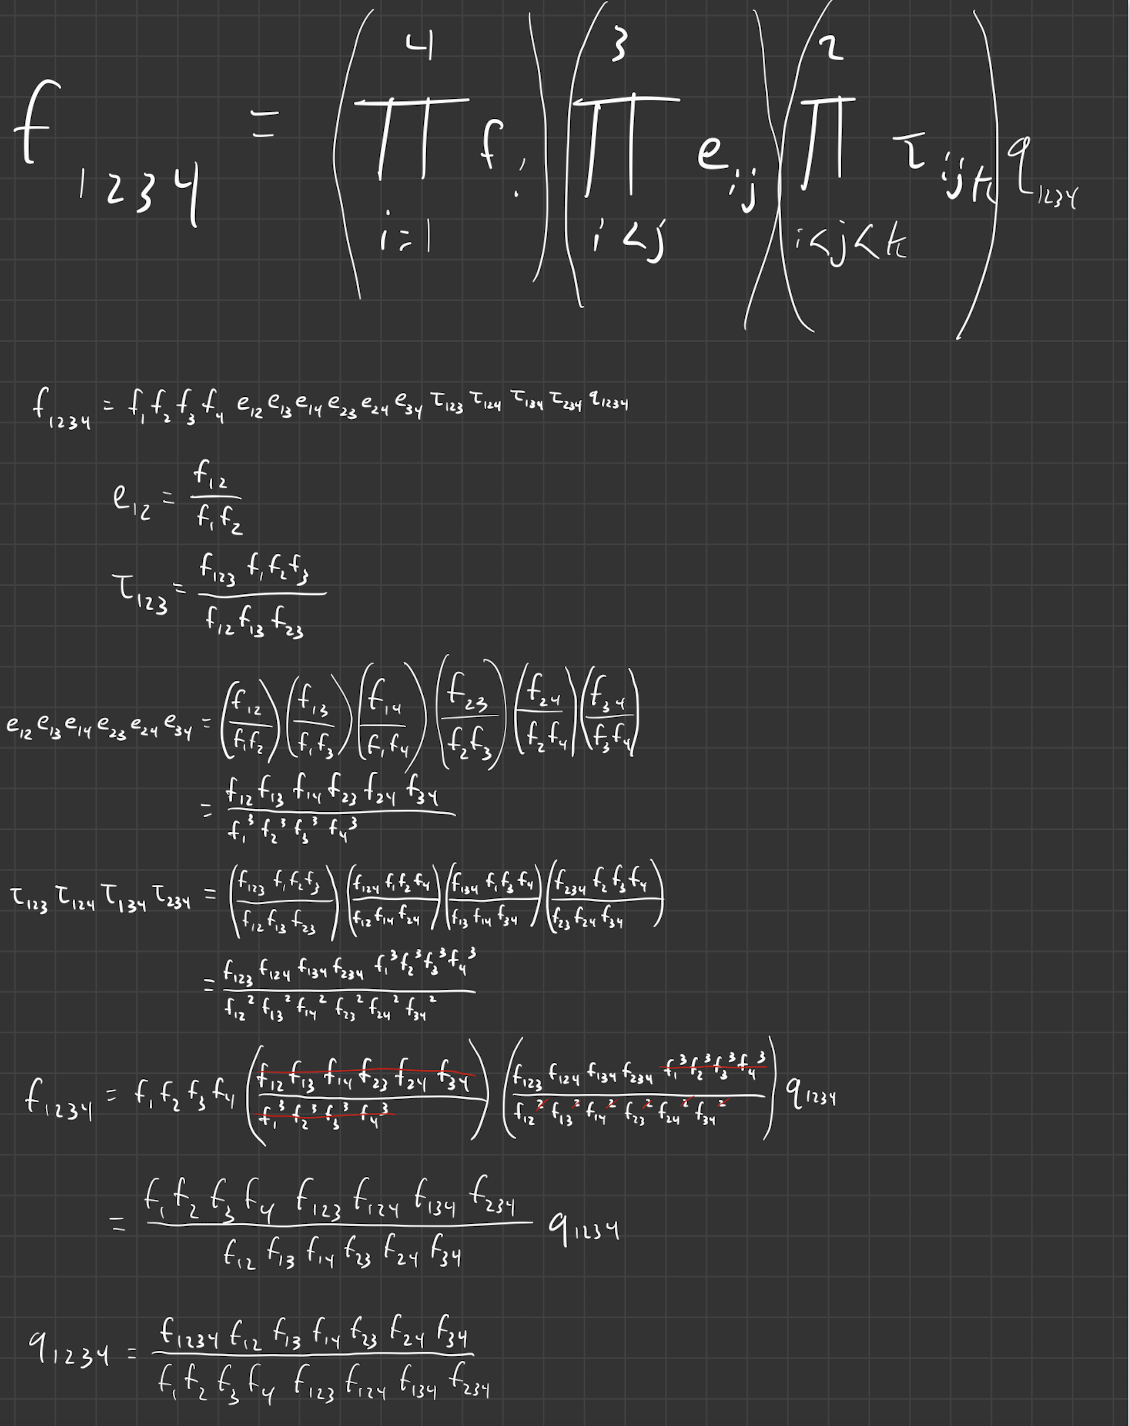 f_{1234} = \left( \prod_{i=1}^{4} f_i \right) \left( \prod_{i<j}^{3} e_{ij} \right) \left( \prod_{i<j<k}^{2} \tau_{ijk} \right) q_{1234}
f_{1234} = f_1 f_2 f_3 f_4 e_{12} e_{13} e_{14} e_{23} e_{24} e_{34} \tau_{123} \tau_{124} \tau_{134} \tau_{234} q_{1234}
e_{12} = \frac{f_{12}}{f_1 f_2}
\tau_{123} = \frac{f_{123} f_1 f_2 f_3}{f_{12} f_{13} f_{23}}
e_{12} e_{13} e_{14} e_{23} e_{24} e_{34} = \left( \frac{f_{12}}{f_1 f_2} \right) \left( \frac{f_{13}}{f_1 f_3} \right) \left( \frac{f_{14}}{f_1 f_4} \right) \left( \frac{f_{23}}{f_2 f_3} \right) \left( \frac{f_{24}}{f_2 f_4} \right) \left( \frac{f_{34}}{f_3 f_4} \right)
= \frac{f_{12} f_{13} f_{14} f_{23} f_{24} f_{34}}{f_1^3 f_2^3 f_3^3 f_4^3}
\tau_{123} \tau_{124} \tau_{134} \tau_{234} = \left( \frac{f_{123} f_1 f_2 f_3}{f_{12} f_{13} f_{23}} \right) \left( \frac{f_{124} f_1 f_2 f_4}{f_{12} f_{14} f_{24}} \right) \left( \frac{f_{134} f_1 f_3 f_4}{f_{13} f_{14} f_{34}} \right) \left( \frac{f_{234} f_2 f_3 f_4}{f_{23} f_{24} f_{34}} \right)
= \frac{f_{123} f_{124} f_{134} f_{234} f_1^3 f_2^3 f_3^3 f_4^3}{f_{12}^2 f_{13}^2 f_{14}^2 f_{23}^2 f_{24}^2 f_{34}^2}
f_{1234} = f_1 f_2 f_3 f_4 \left( \frac{f_{12} f_{13} f_{14} f_{23} f_{24} f_{34}}{f_1^3 f_2^3 f_3^3 f_4^3} \right) \left( \frac{f_{123} f_{124} f_{134} f_{234} f_1^3 f_2^3 f_3^3 f_4^3}{f_{12}^2 f_{13}^2 f_{14}^2 f_{23}^2 f_{24}^2 f_{34}^2} \right) q_{1234}
= \frac{f_1 f_2 f_3 f_4 f_{123} f_{124} f_{134} f_{234}}{f_{12} f_{13} f_{14} f_{23} f_{24} f_{34}} q_{1234}
q_{1234} = \frac{f_{1234} f_{12} f_{13} f_{14} f_{23} f_{24} f_{34}}{f_1 f_2 f_3 f_4 f_{123} f_{124} f_{134} f_{234}}